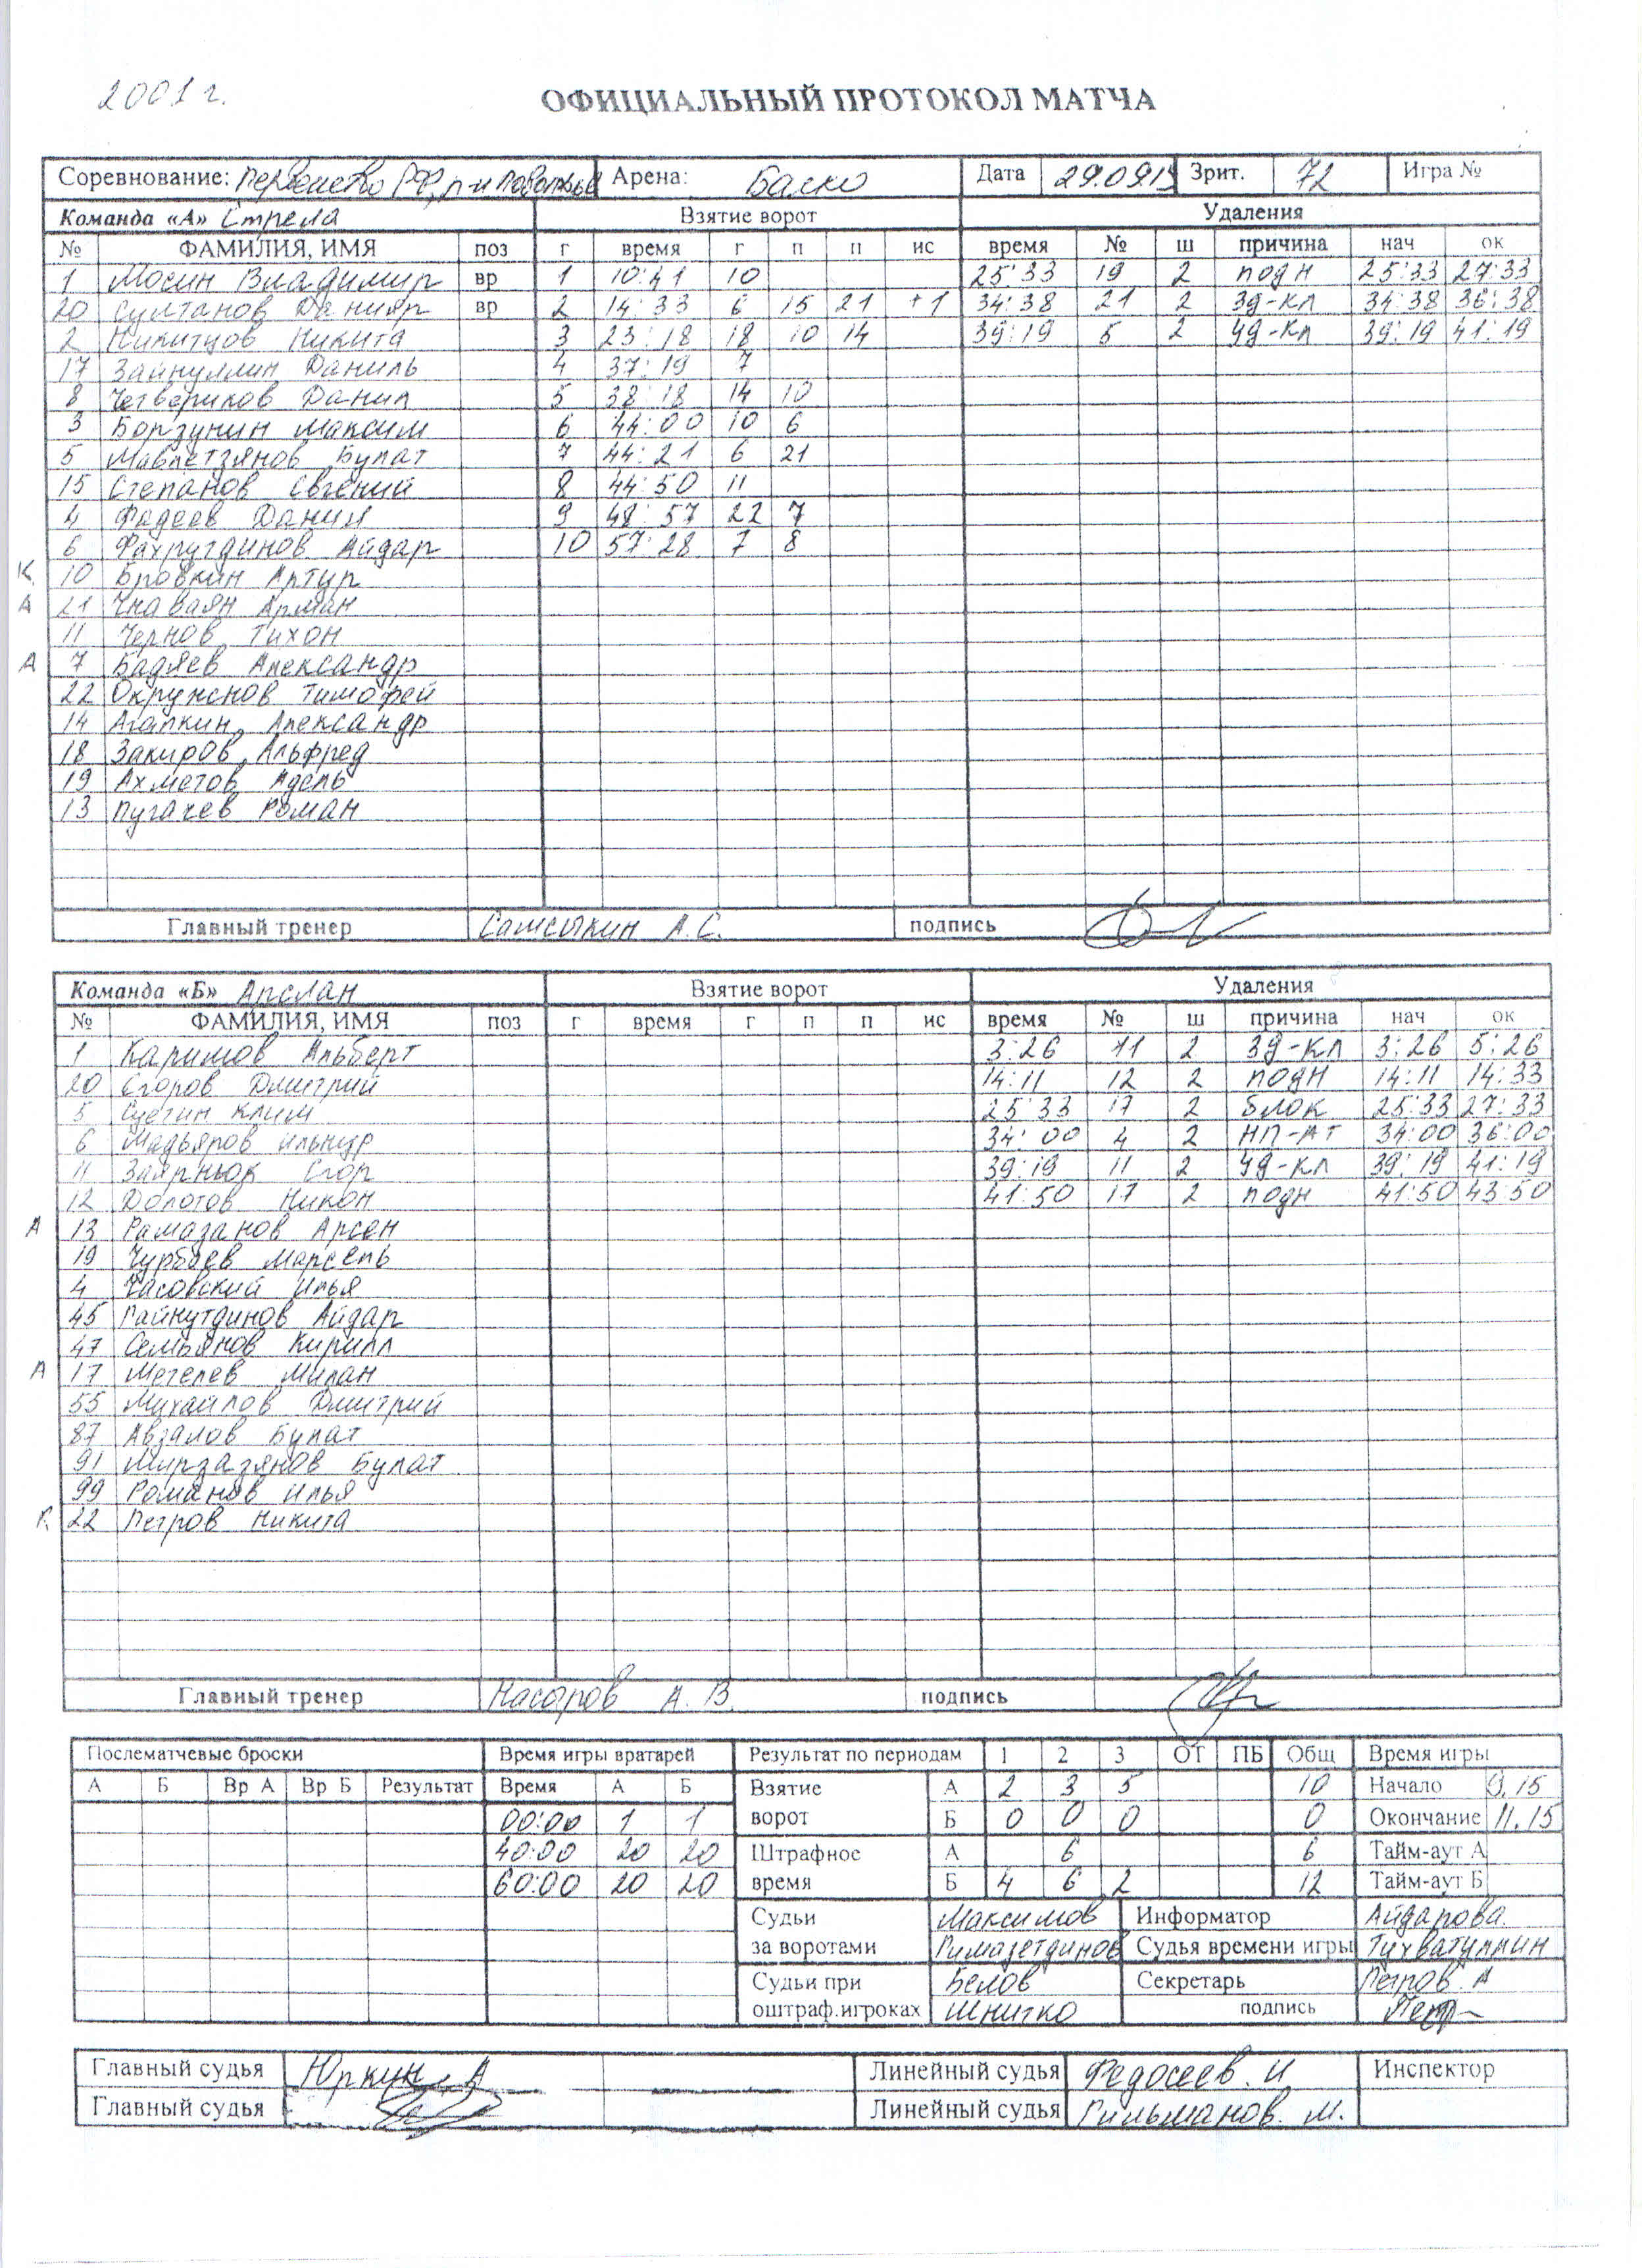 2001 г.
ОФИЦИАЛЬНЫЙ ПРОТОКОЛ МАТЧА
Соревнование: Первенство РФ, р-н Поволжье Арена: Баско Дата 29.09.15 Зрит. 72 Игра №
Команда «А» Стрела Взятие ворот Удаления
№ ФАМИЛИЯ, ИМЯ поз г время г п п ис время № ш причина нач ок
1 Мосин Владимир вр 1 10:41 10 25:33 19 2 подн 25:33 27:33
20 Султанов Данияр вр 2 14:33 6 15 21 +1 34:38 21 2 зд-кл 34:38 36:38
2 Никитцов Никита 3 23:18 18 10 14 39:19 5 2 уд-кл 39:19 41:19
17 Зайнуллин Даниль 4 37:19 7
8 Четвериков Данил 5 38:18 14 10
3 Борзунин Максим 6 44:00 10 6
5 Мавлетзянов Булат 7 44:21 6 21
15 Степанов Евгений 8 44:50 11
4 Фадеев Данил 9 48:57 22 7
6 Фахрутдинов Айдар 10 57:28 7 8
К 10 Бровкин Артур
А 21 Унаваян Арман
11 Чернов Тихон
А 7 Бадяев Александр
22 Окружнов Тимофей
14 Агапкин Александр
18 Закиров Альфред
19 Ахметов Адель
13 Пугачев Роман
Главный тренер Самсыкин А.С. подпись
Команда «Б» Арслан Взятие ворот Удаления
№ ФАМИЛИЯ, ИМЯ поз г время г п п ис время № ш причина нач ок
1 Каримов Альберт 3:26 11 2 зд-кл 3:26 5:26
20 Егоров Дмитрий 14:11 12 2 подн 14:11 14:33
5 Суетин Клим 25:33 17 2 блок 25:33 27:33
6 Мадьяров Ильнур 34:00 4 2 нп-ат 34:00 36:00
11 Заярнюк Егор 39:19 11 2 уд-кл 39:19 41:19
12 Долотов Никон 41:50 17 2 подн 41:50 43:50
А 13 Рамазанов Арсен
19 Чурбаев Марсель
4 Часовский Илья
45 Гайнутдинов Айдар
47 Семьянов Кирилл
А 17 Метелев Милан
55 Михайлов Дмитрий
87 Авзалов Булат
91 Мирзазянов Булат
99 Романов Илья
К 22 Петров Никита
Главный тренер Насыров А.В. подпись
Послематчевые броски Время игры вратарей Результат по периодам 1 2 3 ОТ ПБ Общ Время игры
А Б Вр А Вр Б Результат Время А Б Взятие А 2 3 5 10 Начало 9.15
00:00 1 1 ворот Б 0 0 0 0 Окончание 11.15
40:00 20 20 Штрафное А 6 6 Тайм-аут А
60:00 20 20 время Б 4 6 2 12 Тайм-аут Б
Судьи Максимов Информатор Айдарова
за воротами Гимазетдинов Судья времени игры Тухватуллин
Судьи при Белов Секретарь Петров А
оштраф.игроках Шнитко подпись
Главный судья Юркун А Линейный судья Федосеев. И Инспектор
Главный судья Линейный судья Гильманов. М.